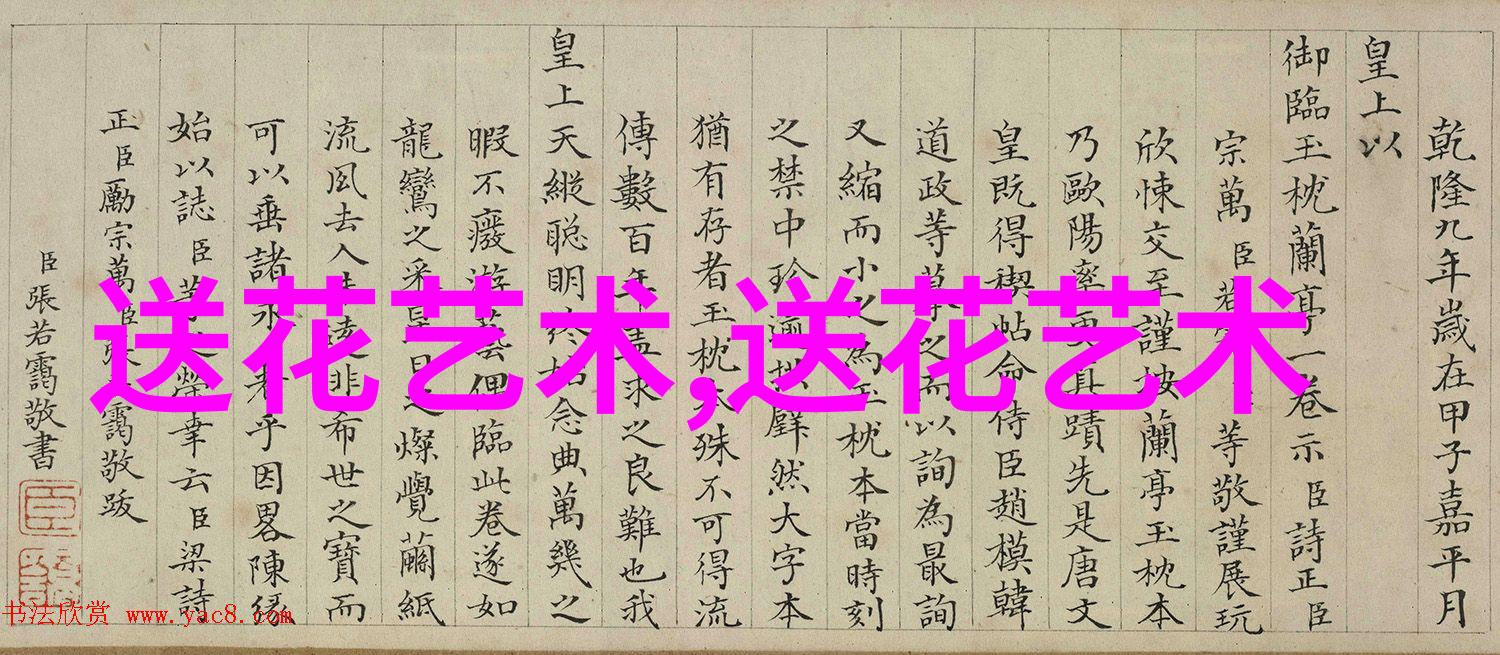 送花艺术,送花艺术
乾隆九年歲在甲子嘉平月
皇上以
御臨玉枕蘭亭一卷示臣詩正臣
宗萬臣若等敬謹展玩
欣悚交至謹按蘭亭玉枕本
乃歐陽率更真蹟先是唐文
皇既得禊帖命侍臣趙模韓
道政等摹之而以詢為最詢
又縮而小之為玉枕本當時刻
之禁中珍逾拱璧然大字本
猶有存者玉枕本殊不可得流
傳數百年蓋求之良難也我
皇上天縱聰明終始念典萬幾之
暇不廢游藝臨此卷遂如
龍鸞之采日之燦覺繭紙
流風去人遠非希世之寶而
可以垂諸永者乎因畧陳緣
始以誌臣等之榮幸云臣梁詩
正臣勵宗萬臣張靄敬跋
臣張若靄敬書
书法欣赏 www.yac8.com